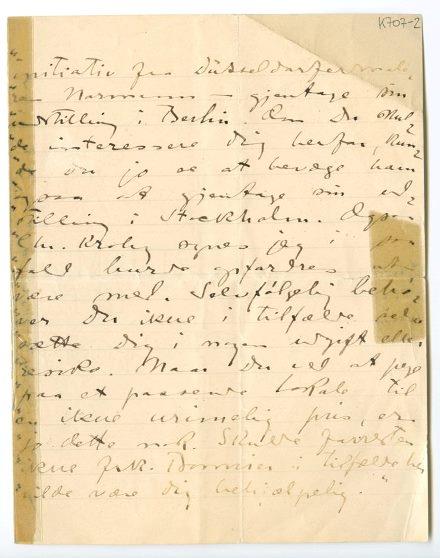 K707-2
initiativ fra Düsseldorfermale-
ren Normann — gjentage sin
udstilling i Berlin. Om Du skul-
de interessere dig herfor, kun-
de du jo se at bevæge ham
ogsaa at gjentage sin ud-
stilling i Stockholm. Ogsaa
Chr. Krohg synes jeg i saa
fald burde opfordres at
være med. Selvfølgelig behø-
ver Du ikke i tilfælde selv
sætte Dig i nogen udgift eller
risiko. Maa Du vel at pege
paa et passende lokale til
en ikke urimelig pris, er
jo dette nok. Skulde forresten
ikke frk. Bonnier i tilfælde
vilde være dig behjælpelig."